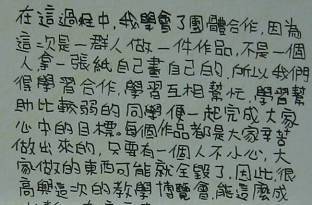 在這過程中,我學會了團體合作,因為
這次是一群人做一件作品,不是一個
人拿一張紙自己畫自己的,所以我們
得學習合作,學習互相幫忙,學習幫
助比較弱的同學,便一起完成大家
心中的目標。每個作品都是大家辛苦
做出來的,只要有一個人不小心,大
家做的東西可能就全毀了,因此,很
高興這次的教學博覽會,能這麼成